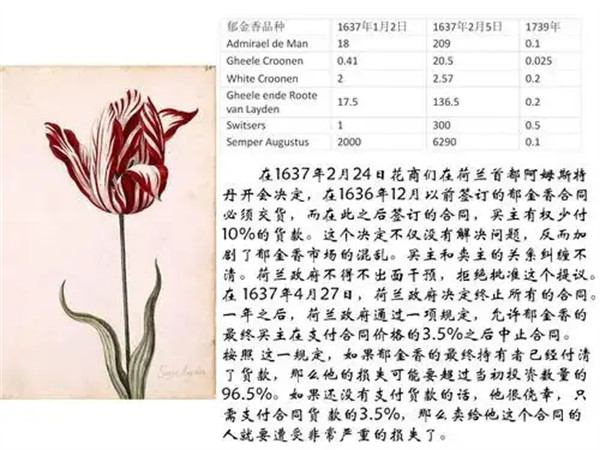 郁金香品种 1637年1月2日 1637年2月5日 1739年
Admirael de Man 18 209 0.1
Gheele Croonen 0.41 20.5 0.025
White Croonen 2 2.57 0.2
Gheele ende Roote
van Layden 17.5 136.5 0.2
Switsers 1 300 0.5
Semper Augustus 2000 6290 0.1
在1637年2月24日花商们在荷兰首都阿姆斯特
丹开会决定，在1636年12月以前签订的郁金香合同
必须交货，而在此之后签订的合同，买主有权少付
10%的货款。这个决定不仅没有解决问题，反而加
剧了郁金香市场的混乱。买主和卖主的关系纠缠不
清。荷兰政府不得不出面干预，拒绝批准这个提议。
在1637年4月27日，荷兰政府决定终止所有的合同。
一年之后，荷兰政府通过一项规定，允许郁金香的
最终买主在支付合同价格的3.5%之后中止合同。
按照这一规定，如果郁金香的最终持有者已经付清
了货款，那么他的损失可能要超过当初投资数量的
96.5%。如果还没有支付货款的话，他很侥幸，只
需支付合同货款的3.5%，那么卖给他这个合同的
人就要遭受非常严重的损失了。